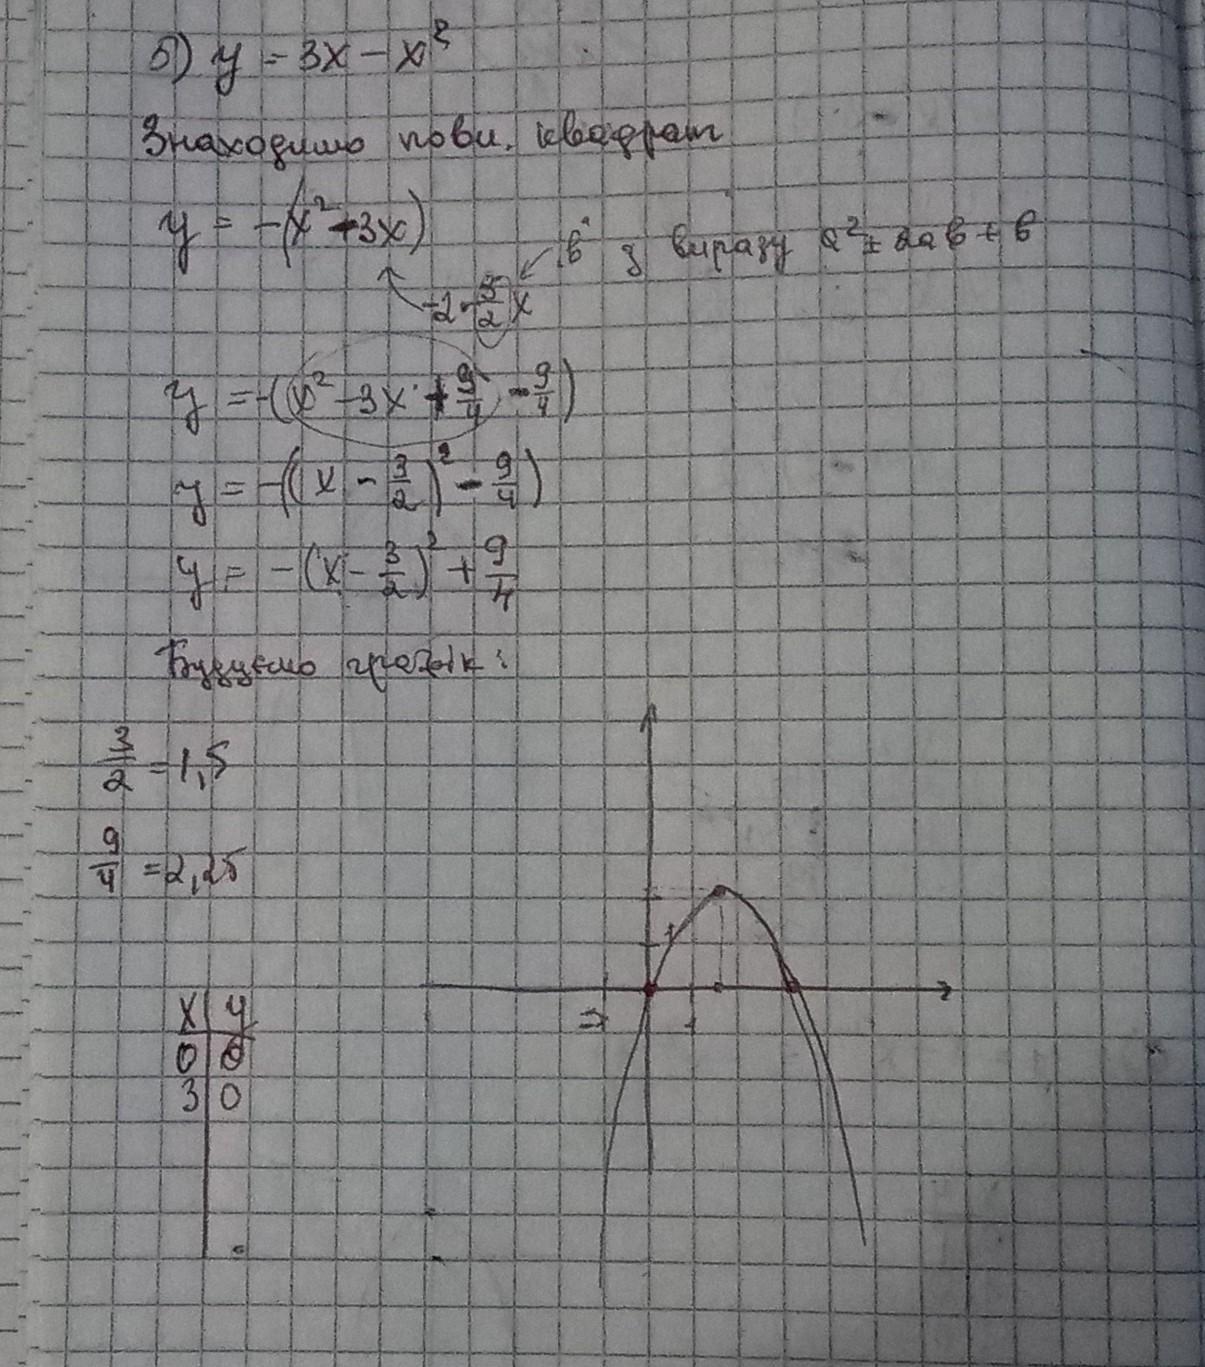 б) y = 3x - x²
Знаходимо повн. квадрат
y = -(x² - 3x)
"в" з виразу a² ± 2ab + b
-2 · 3/2 x
y = -(x² - 3x + 9/4 - 9/4)
y = -((x - 3/2)² - 9/4)
y = -(x - 3/2)² + 9/4
Будуємо графік:
3/2 = 1,5
9/4 = 2,25
x | y
0 | 0
3 | 0